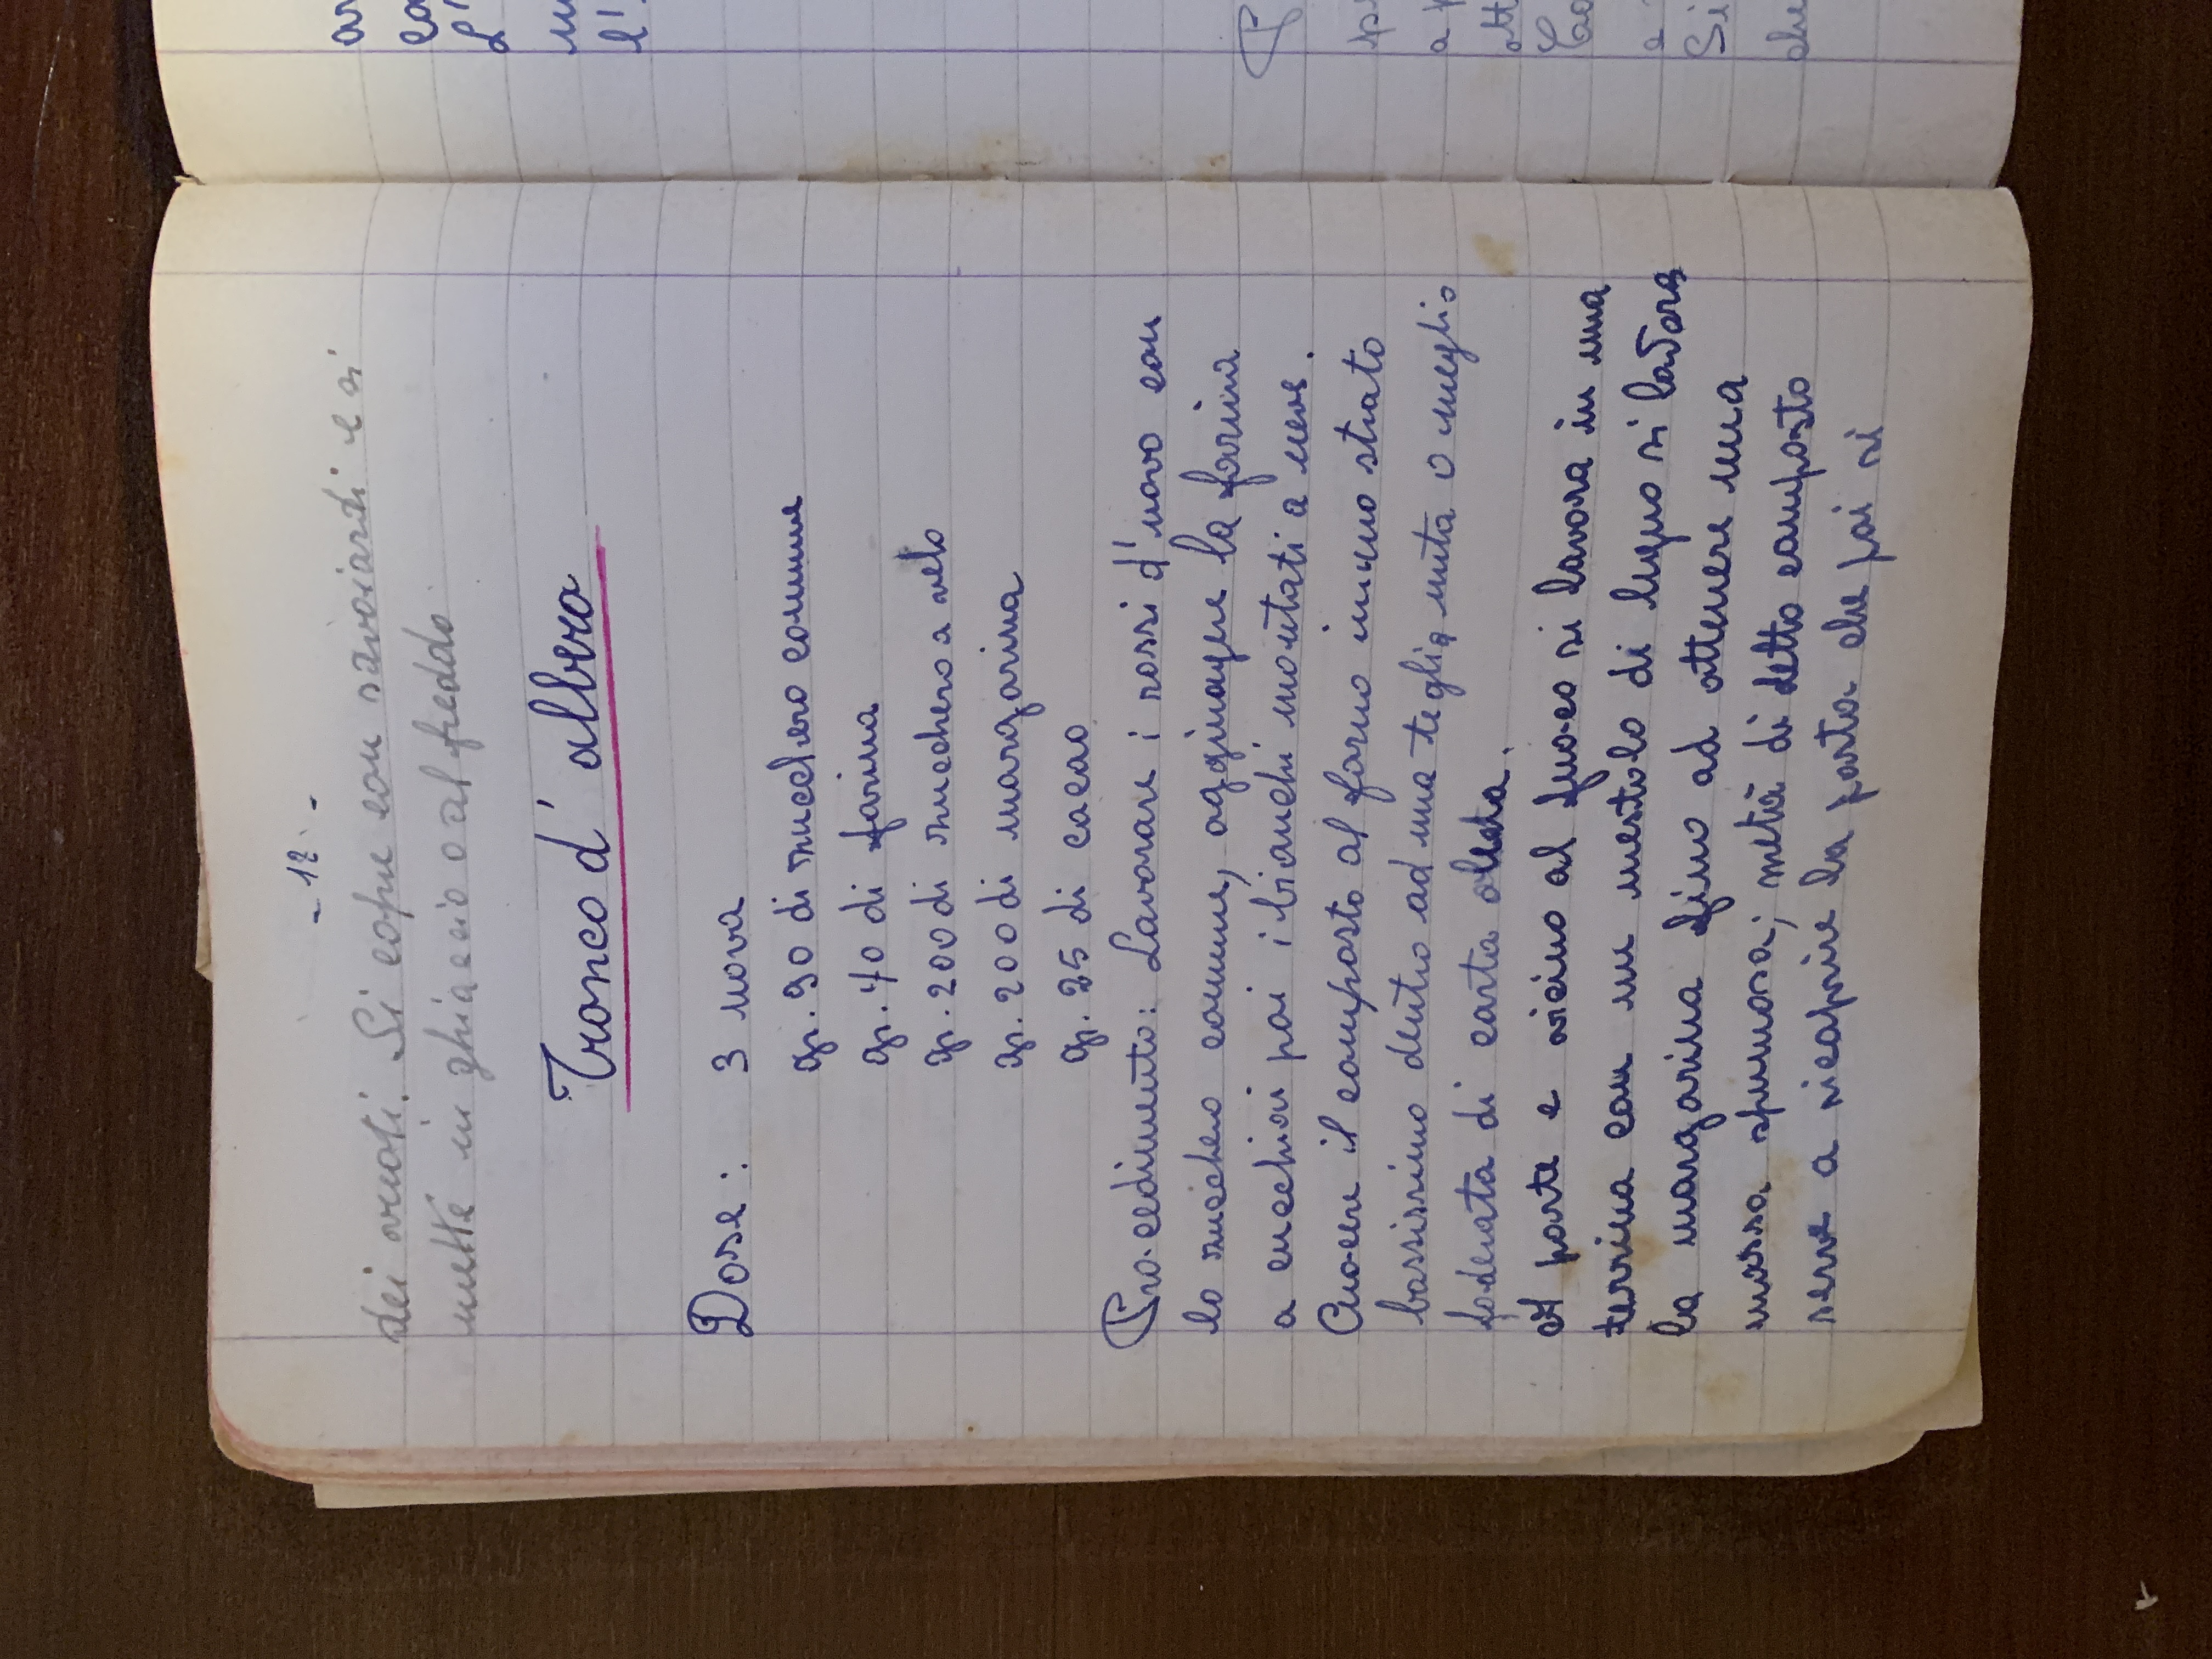 - 12 -
dei vuoti. Si copre con savoiardi e si
mette in ghiaccio o al freddo
Tronco d'albero
Dose: 3 uova
gr. 90 di zucchero comune
gr. 40 di farina
gr. 200 di zucchero a velo
gr. 200 di margarina
gr. 25 di cacao
Procedimento: Lavorare i rossi d'uovo con
lo zucchero comune, aggiungere la farina
a cucchiai poi i bianchi montati a neve.
Cuocere il composto al forno in uno strato
bassissimo dentro ad una teglia unta o meglio
foderata di carta oleata.
A parte e vicino al fuoco si lavora in una
terrina con un mestolo di legno si lavora
la margarina fino ad ottenere una
massa spumosa; metà di detto composto
serve a ricoprire la pasta che poi si
L'
l'
a
e
Si
che